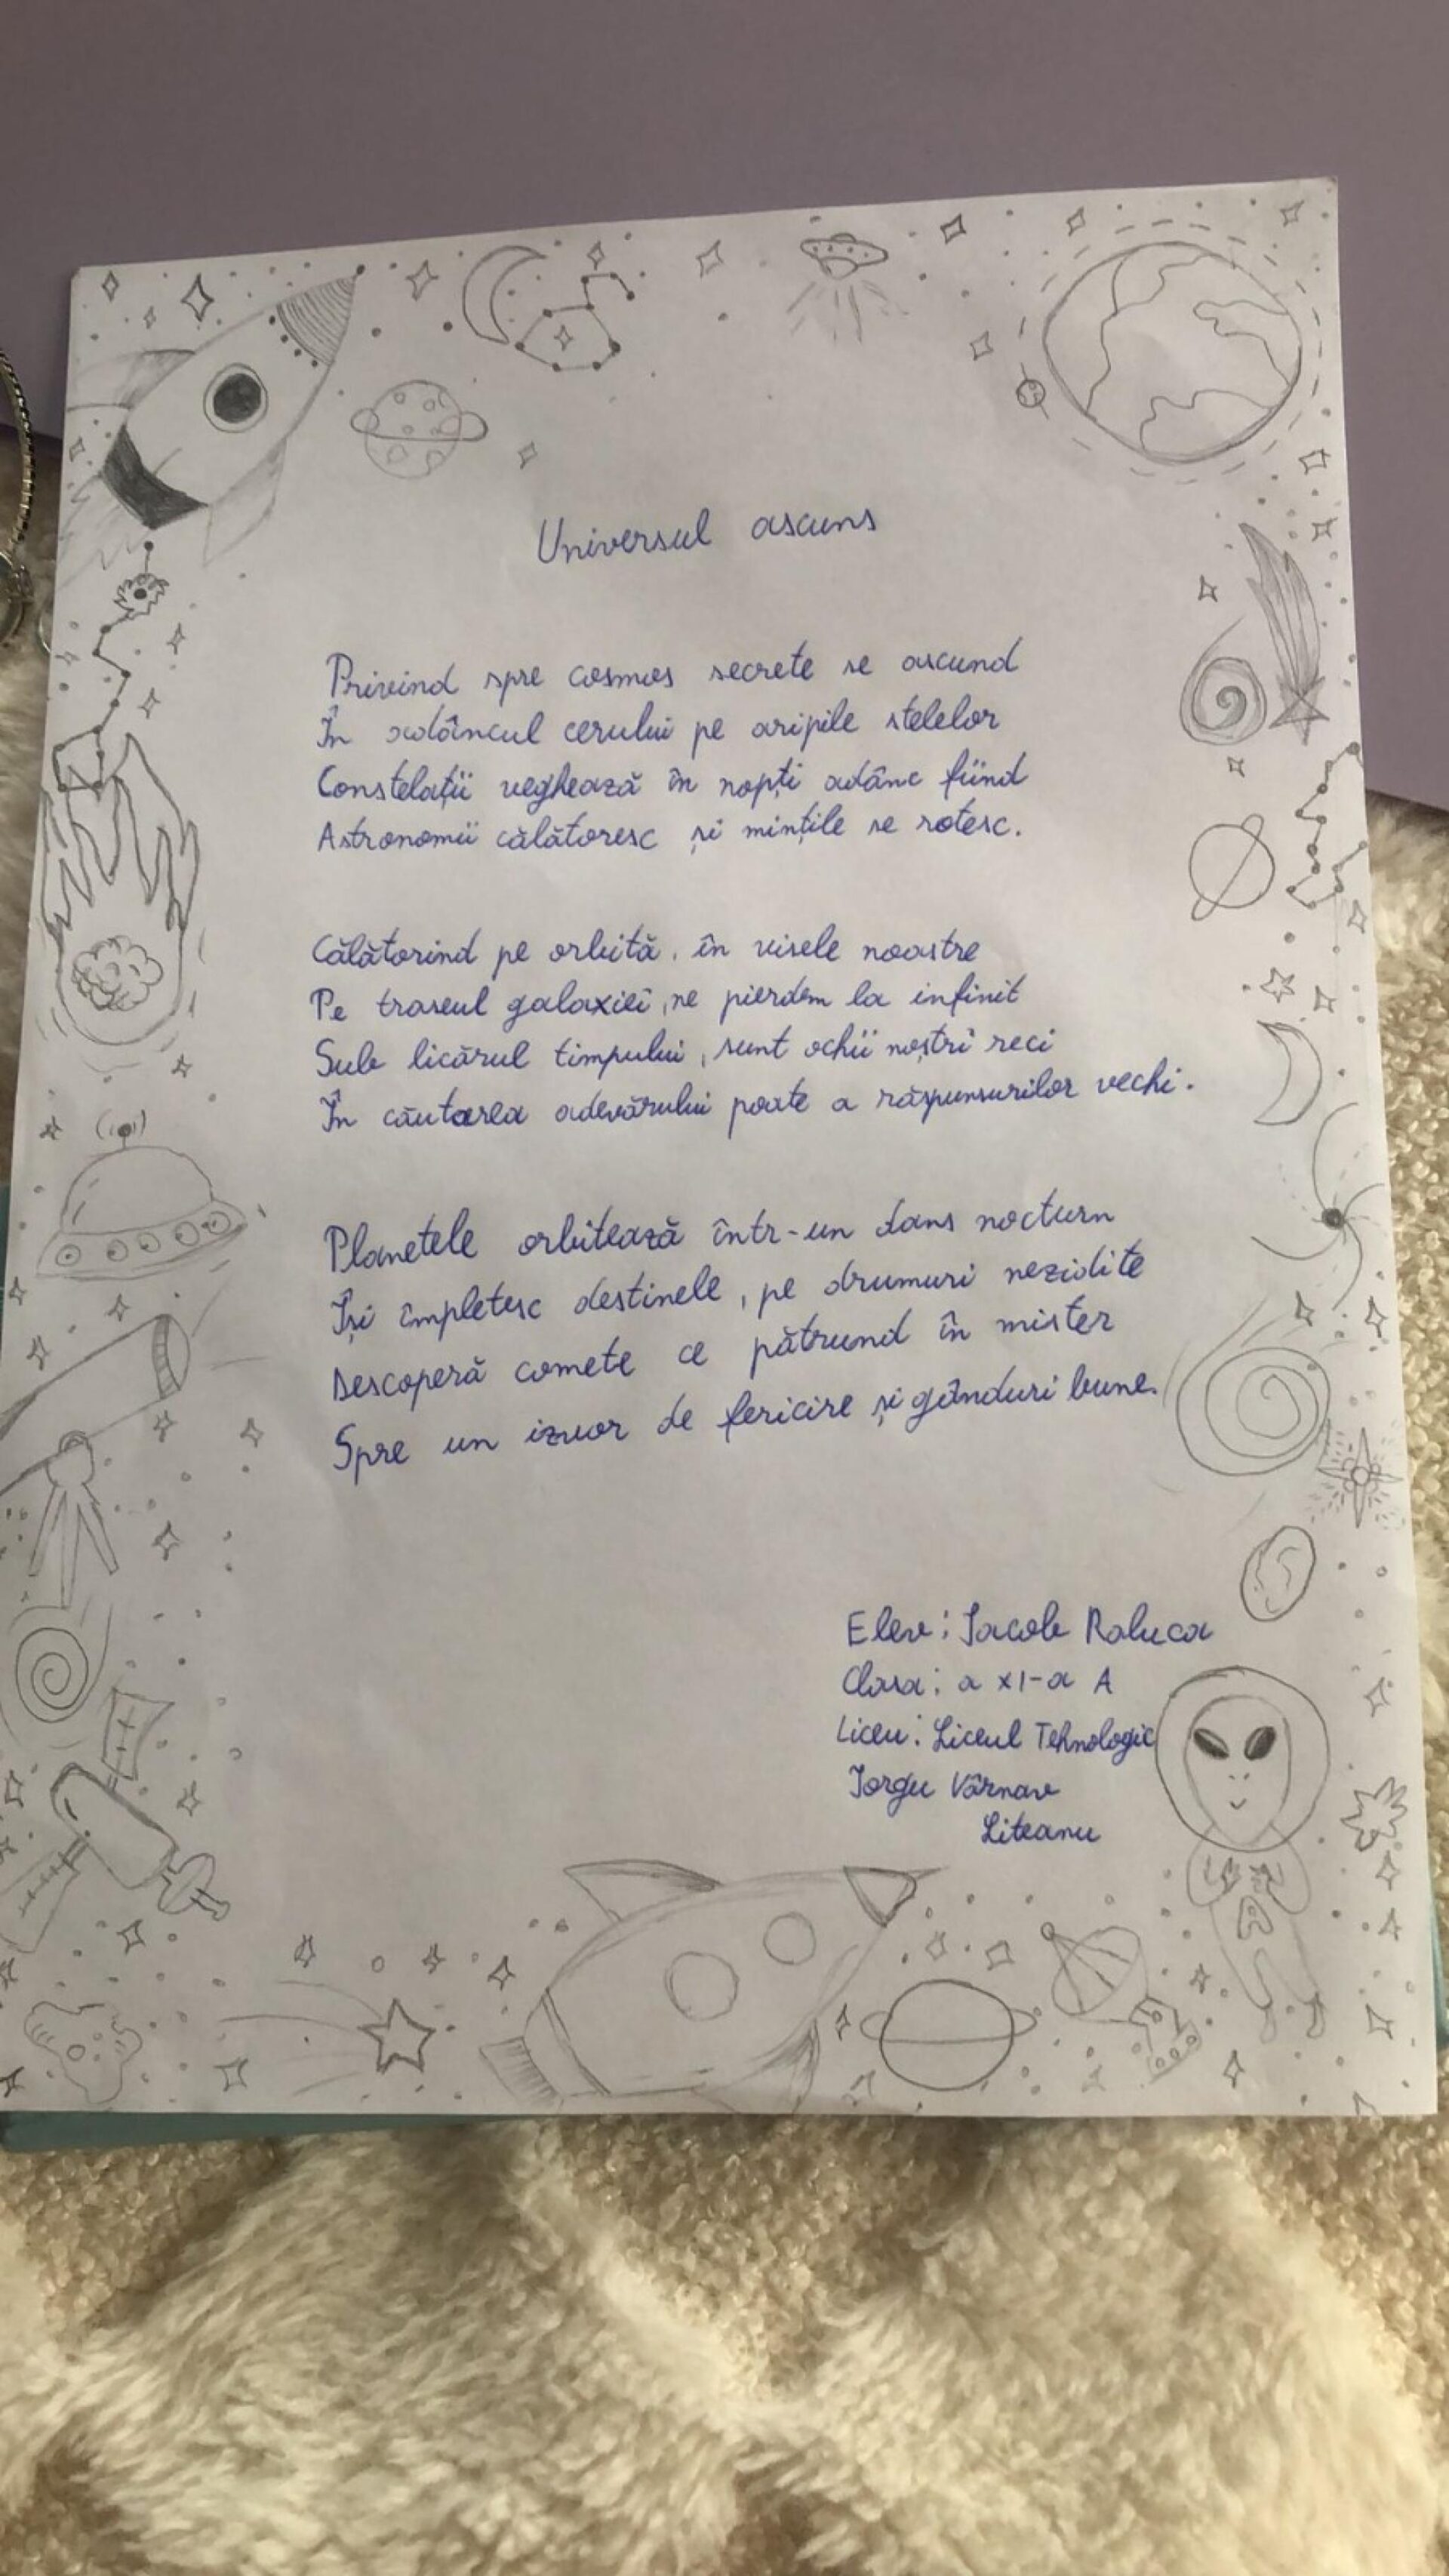 Universul ascuns
Privind spre cosmos secrete se ascund
În adâncul cerului pe aripile stelelor
Constelații veghează în nopți adânc fiind
Astronomii călătoresc și mințile se rotesc.
Călătorind pe orbită, în visele noastre
Pe traseul galaxiei, ne pierdem la infinit
Sub licărul timpului, sunt ochii noștri reci
În căutarea adevărului poate a răspunsurilor vechi.
Planetele orbitează într-un dans nocturn
Își împletesc destinele, pe drumuri nezidite
Descoperă comete ce pătrund în mister
Spre un izvor de fericire și gânduri bune.
Elev: Iacob Raluca
Clasa: a XI-a A
Liceu: Liceul Tehnologic
Iorgu Vârnav
Liteanu